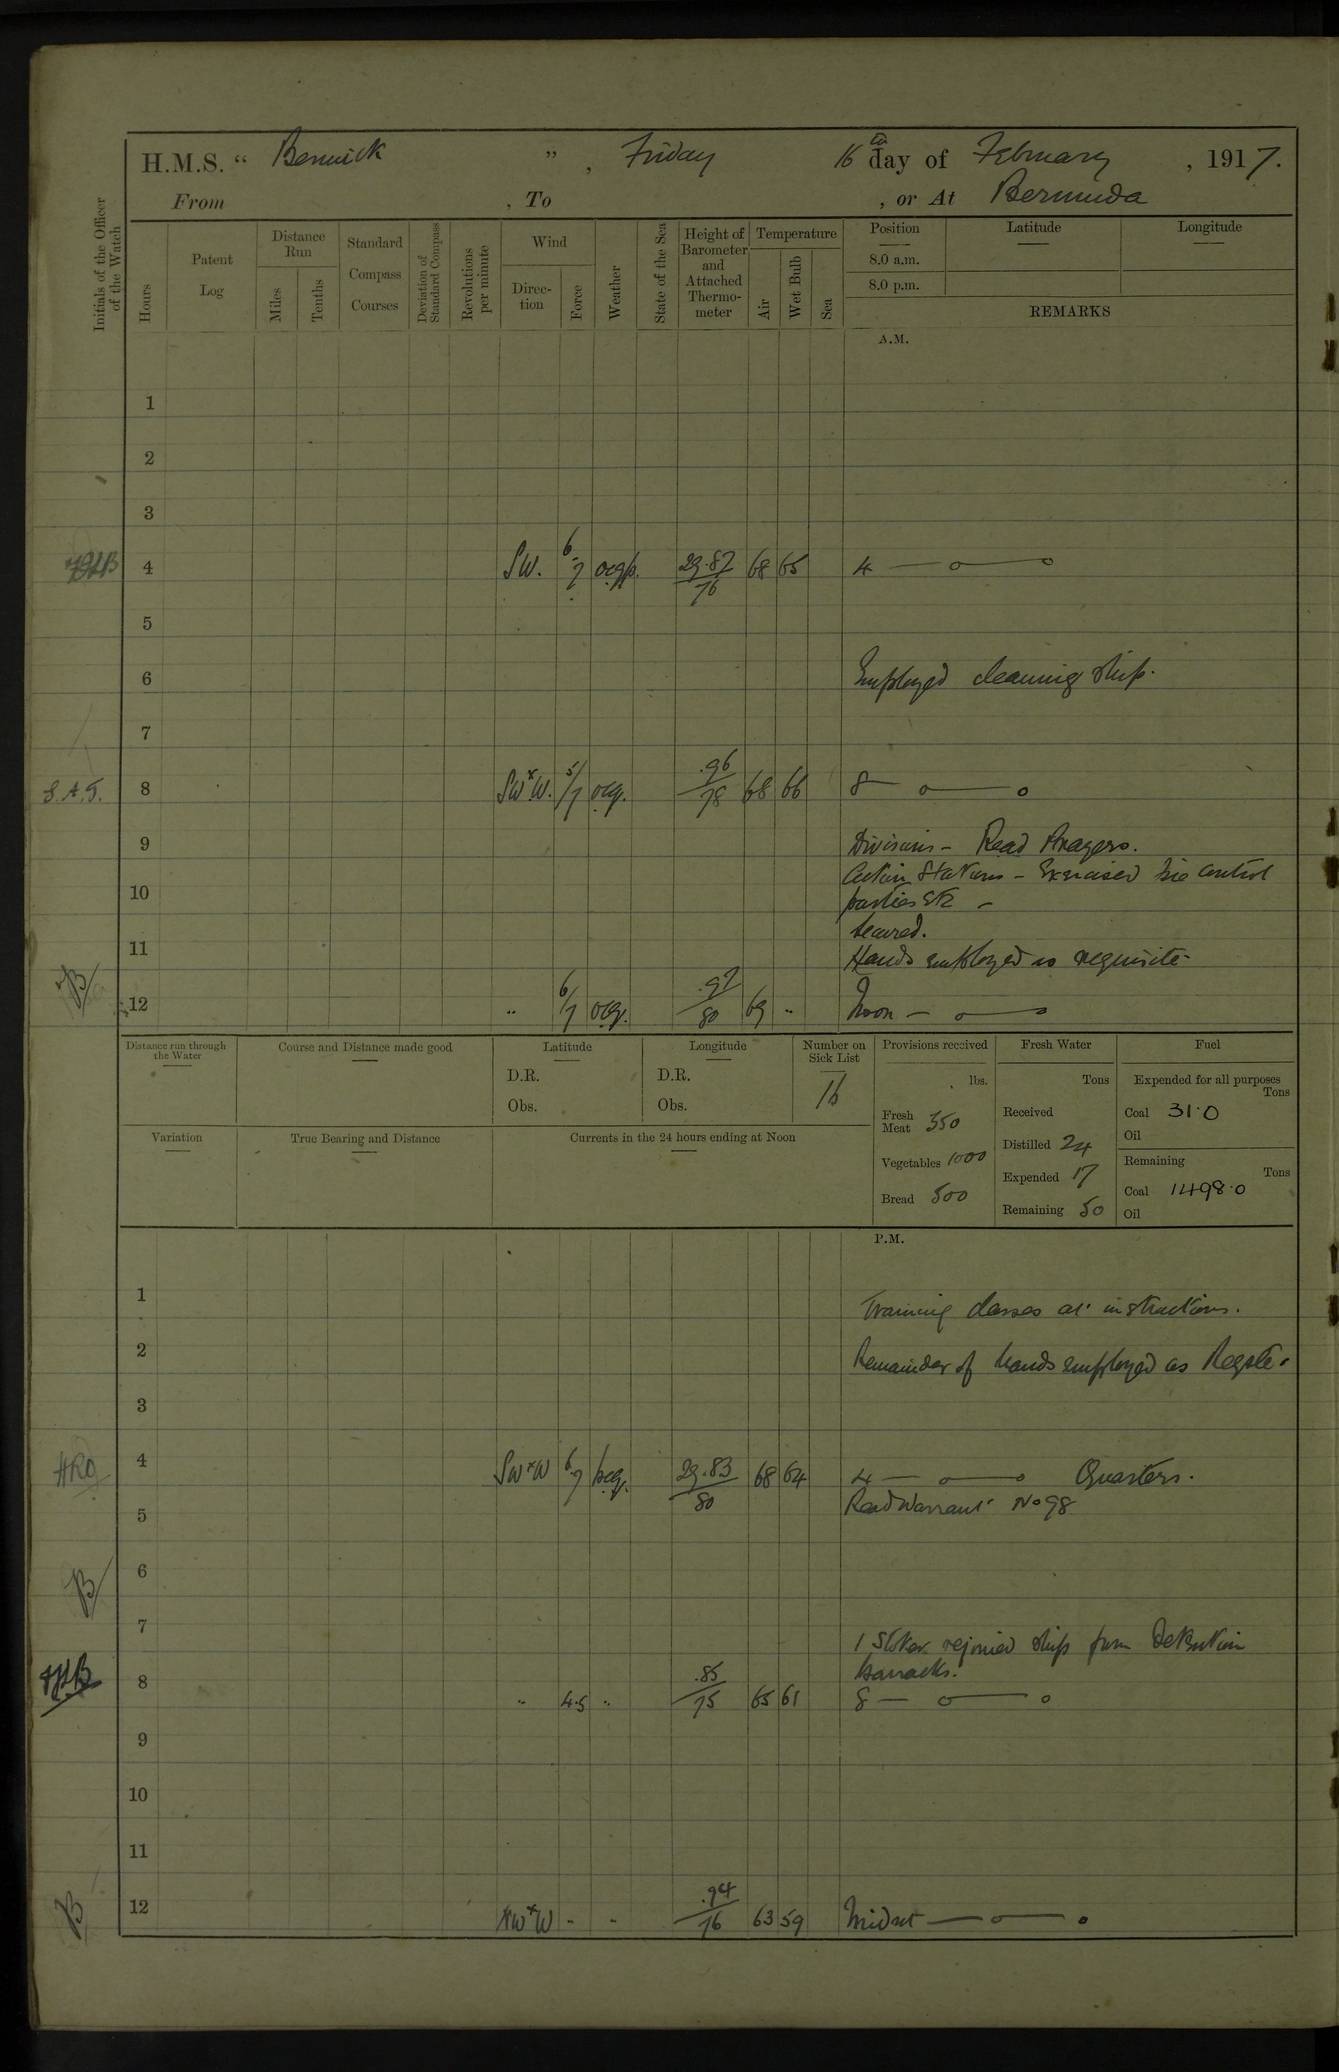 H.M.S. “ Berwick ” , Friday 16th day of February , 1917.
From , To , or At Bermuda
Initials of the Officer of the Watch
Hours
Patent Log
Distance Run
Miles
Tenths
Standard Compass Courses
Deviation of Standard Compass
Revolutions per minute
Wind
Direction
Force
Weather
State of the Sea
Height of Barometer and Attached Thermometer
Temperature
Air
Wet Bulb
Sea
Position
Latitude
Longitude
8.0 a.m.
8.0 p.m.
REMARKS
A.M.
1
2
3
4 SW. 6-7 ocqp. 29.87/76 68 65 4 — o — o
5
6 Employed cleaning ship.
7
S.A.T. 8 SWxW. 5/7 ocq. .96/78 68 66 8 — o — o
9 Divisions - Read Prayers.
Action Stations - Exercised fire control
10 parties etc -
Secured.
11 Hands employed as requisite
B 12 " 6/7 ocq. .97/80 69 " Noon — o — o
Distance run through the Water
Course and Distance made good
Latitude
D.R.
Obs.
Longitude
D.R.
Obs.
Number on Sick List
16
Provisions received
lbs.
Fresh Meat 350
Vegetables 1000
Bread 500
Fresh Water
Tons
Received
Distilled 24
Expended 17
Remaining 50
Fuel
Expended for all purposes
Tons
Coal 31.0
Oil
Remaining
Tons
Coal 1498.0
Oil
Variation
True Bearing and Distance
Currents in the 24 hours ending at Noon
P.M.
1 Training classes at instructions.
2 Remainder of hands employed as Reqste.
3
4 SWxW 6-7 bcq. 29.83/80 68 64 4 — o — o Quarters.
Read Warrant No 98
5
B 6
7 1 Stoker rejoined ship from Detention
barracks.
8 " 4.5 " .85/75 65 61 8 — o — o
9
10
11
B 12 WxW " " .94/76 63 59 Midnt — o — o